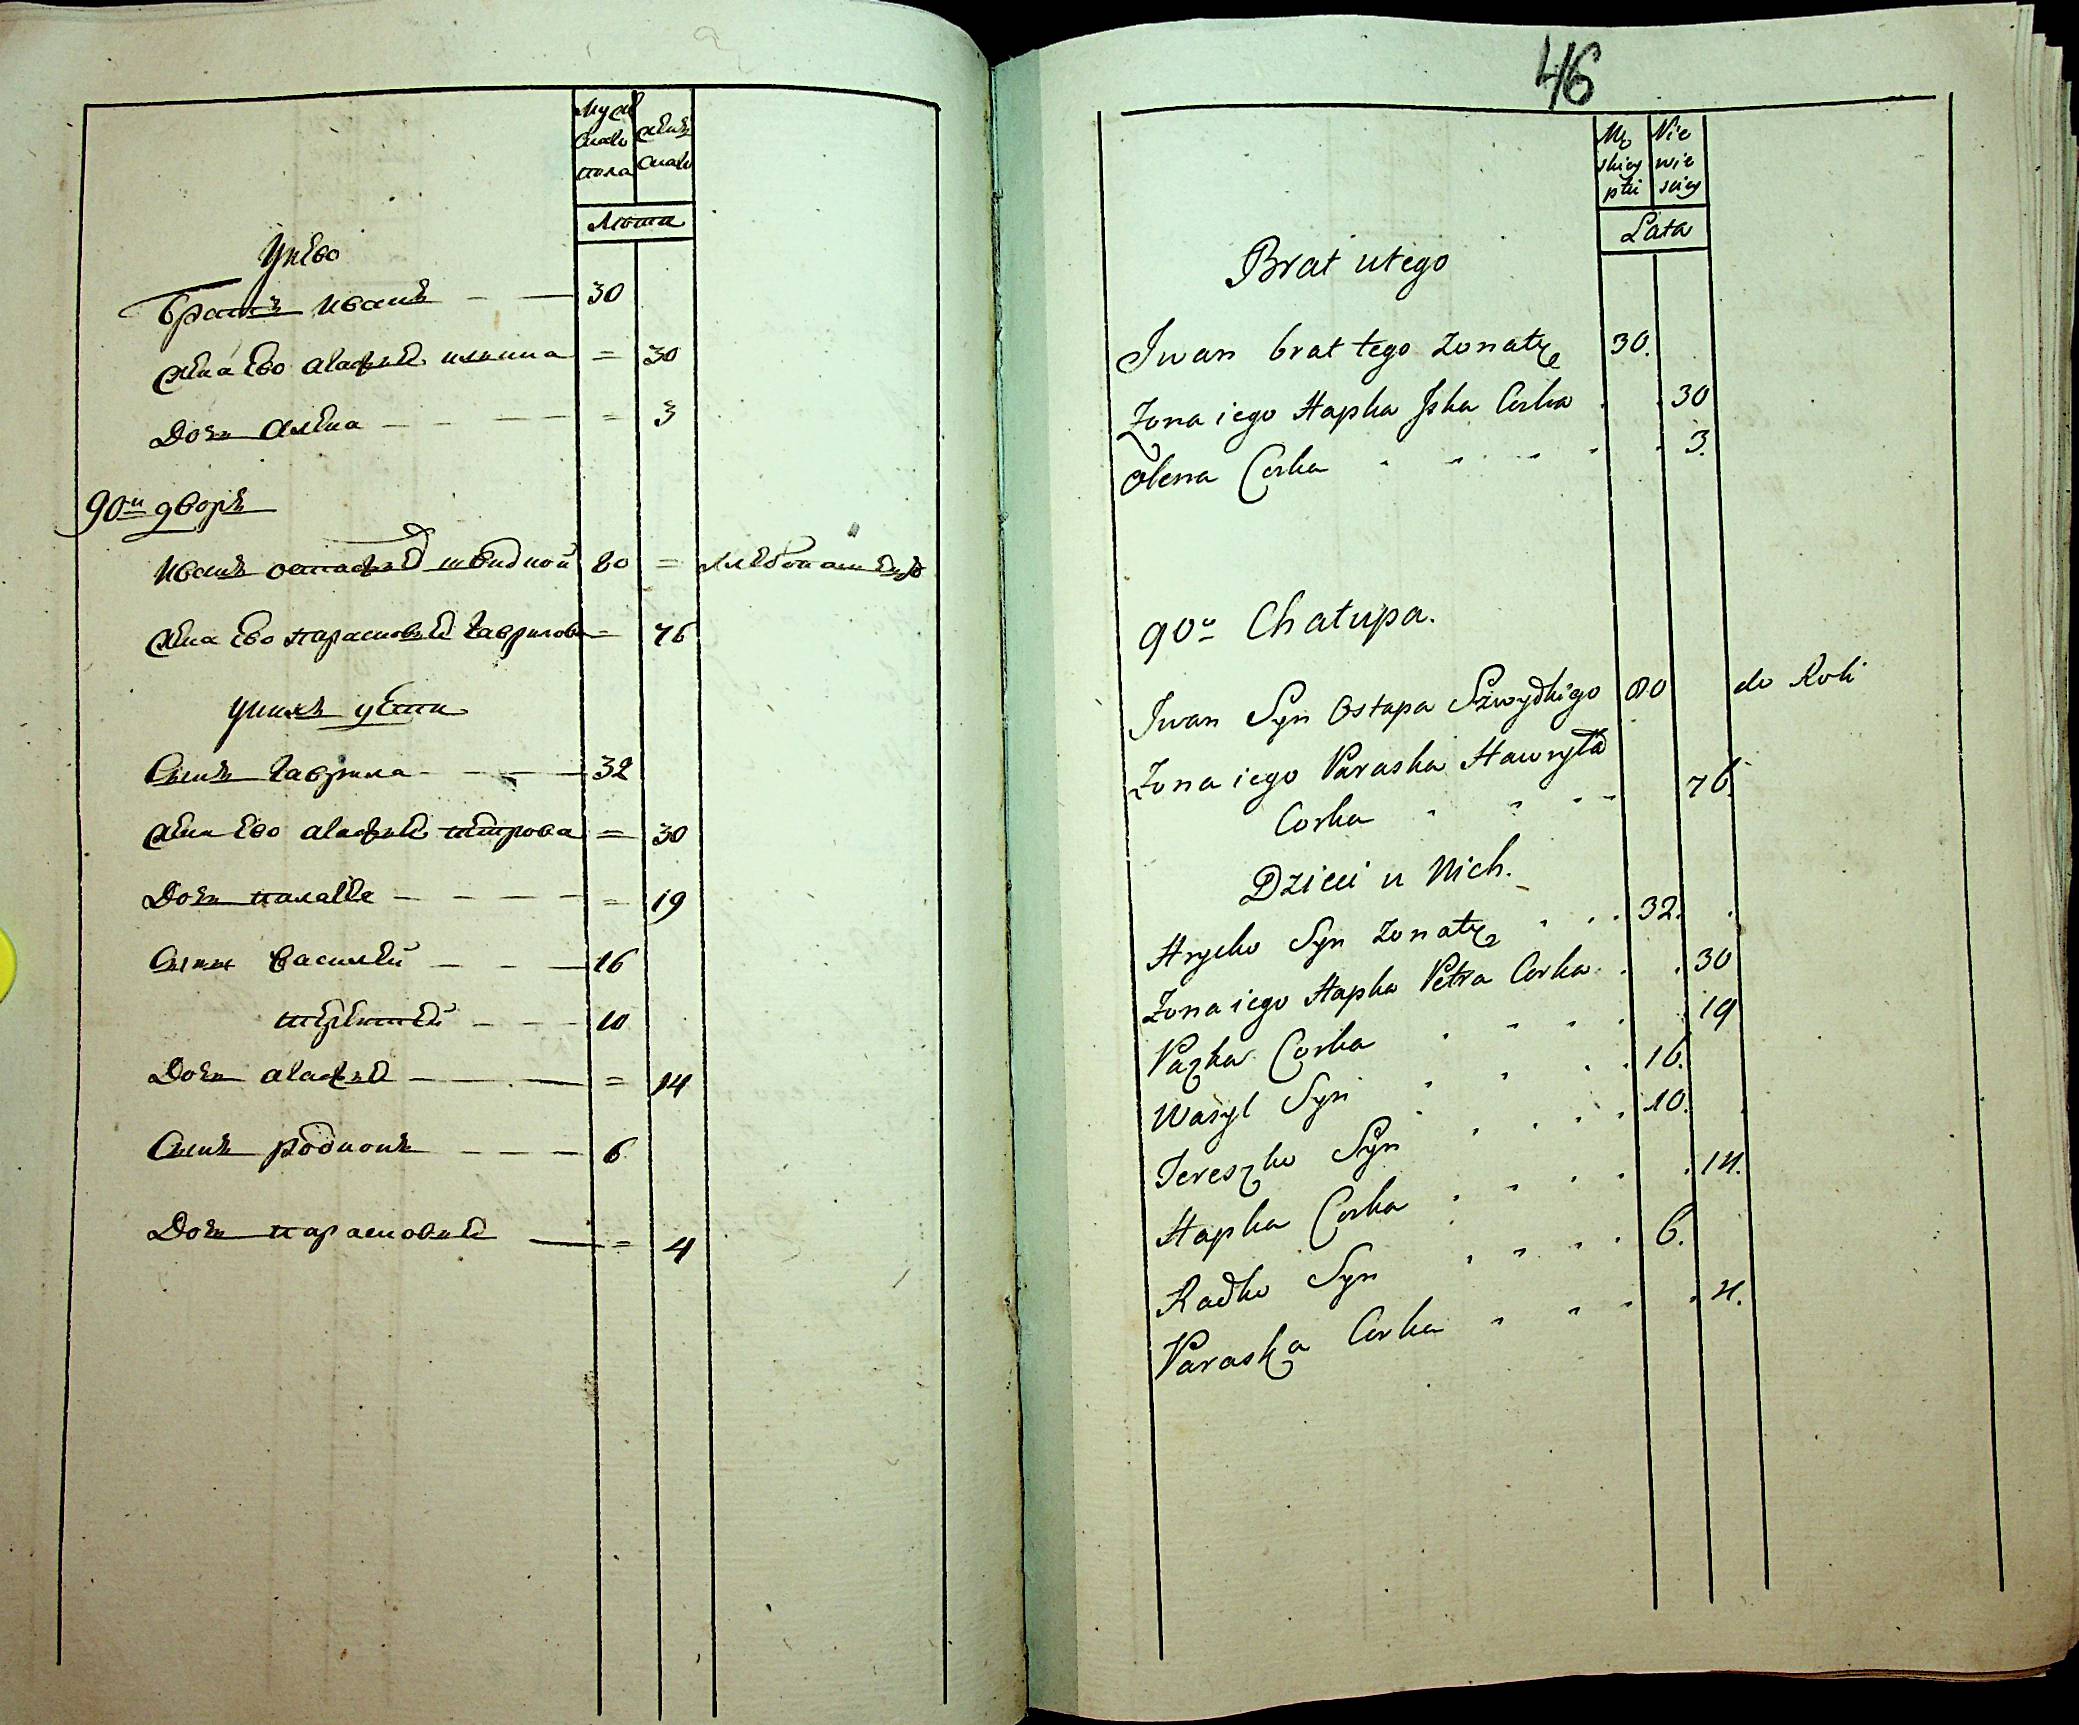 Мужеска пола
Женска
Лета
У него
Братъ Иванъ 30
Жена ево Агафия = 30
Дочь Алена = 3
90й дворъ
Иванъ Остафьев Швидкой 80 =
Жена ево Парасковья Гаврилова = 76
у нихъ дети
Сынъ Гаврила 32
Жена ево Агафия Петрова = 30
Дочь Палагея = 19
Сыны Василей 16
Терентей 10
Дочь Агафия = 14
Сынъ Родионъ 6
Дочь Парасковия = 4
46
Mę skiey płci
Nie wie sciey
Lata
Brat u tego
Iwan brat tego zonaty 30.
Zona iego Hapka Jska Corka 30
Olena Corka 3.
90a Chatupa.
Iwan Syn Ostapa Szwydkigo 80 do Roli
Zona iego Paraska Hawryła
Corka 76.
Dzieci u Nich.
Hrycko Syn zonaty 32.
Zona iego Hapka Petra Corka 30
Pazka Corka 19
Wasyl Syn 16.
Tereszko Syn 10.
Hapka Corka 14.
Radko Syn 6.
Paraska Corka 4.